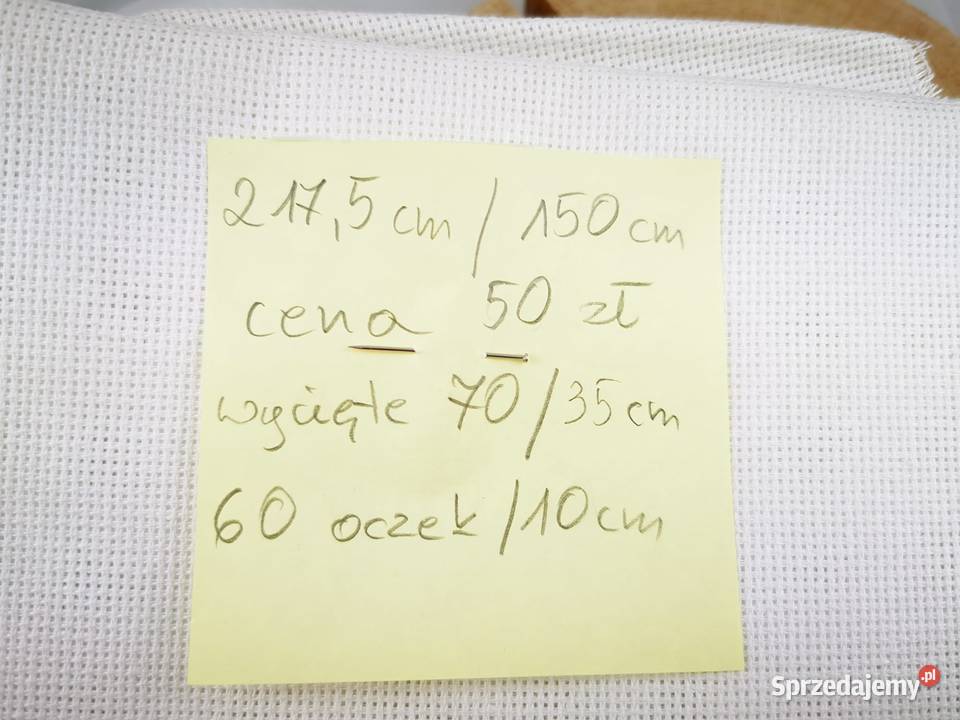 217,5 cm / 150 cm
cena 50 zł
wycięte 70/35 cm
60 oczek /10 cm
Sprzedajemy.pl